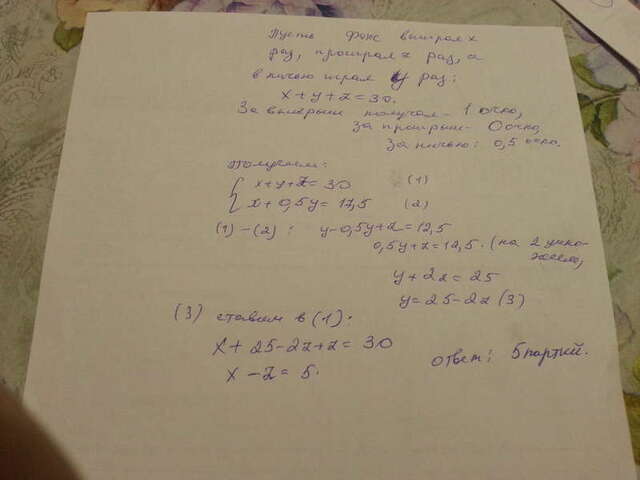 Пусть Фокс выиграл x
раз, проиграл z раз, а
в ничью играл y раз:
x + y + z = 30.
За выигрыш получал - 1 очко,
За проигрыш - 0 очко,
За ничью: 0,5 очко.
Получаем:
{ x + y + z = 30 (1)
x + 0,5y = 17,5 (2)
(1) - (2): y - 0,5y + z = 12,5
0,5y + z = 12,5. (на 2 умножаем;
y + 2z = 25
y = 25 - 2z (3)
(3) ставим в (1):
x + 25 - 2z + z = 30
x - z = 5.
ответ: 5 партий.